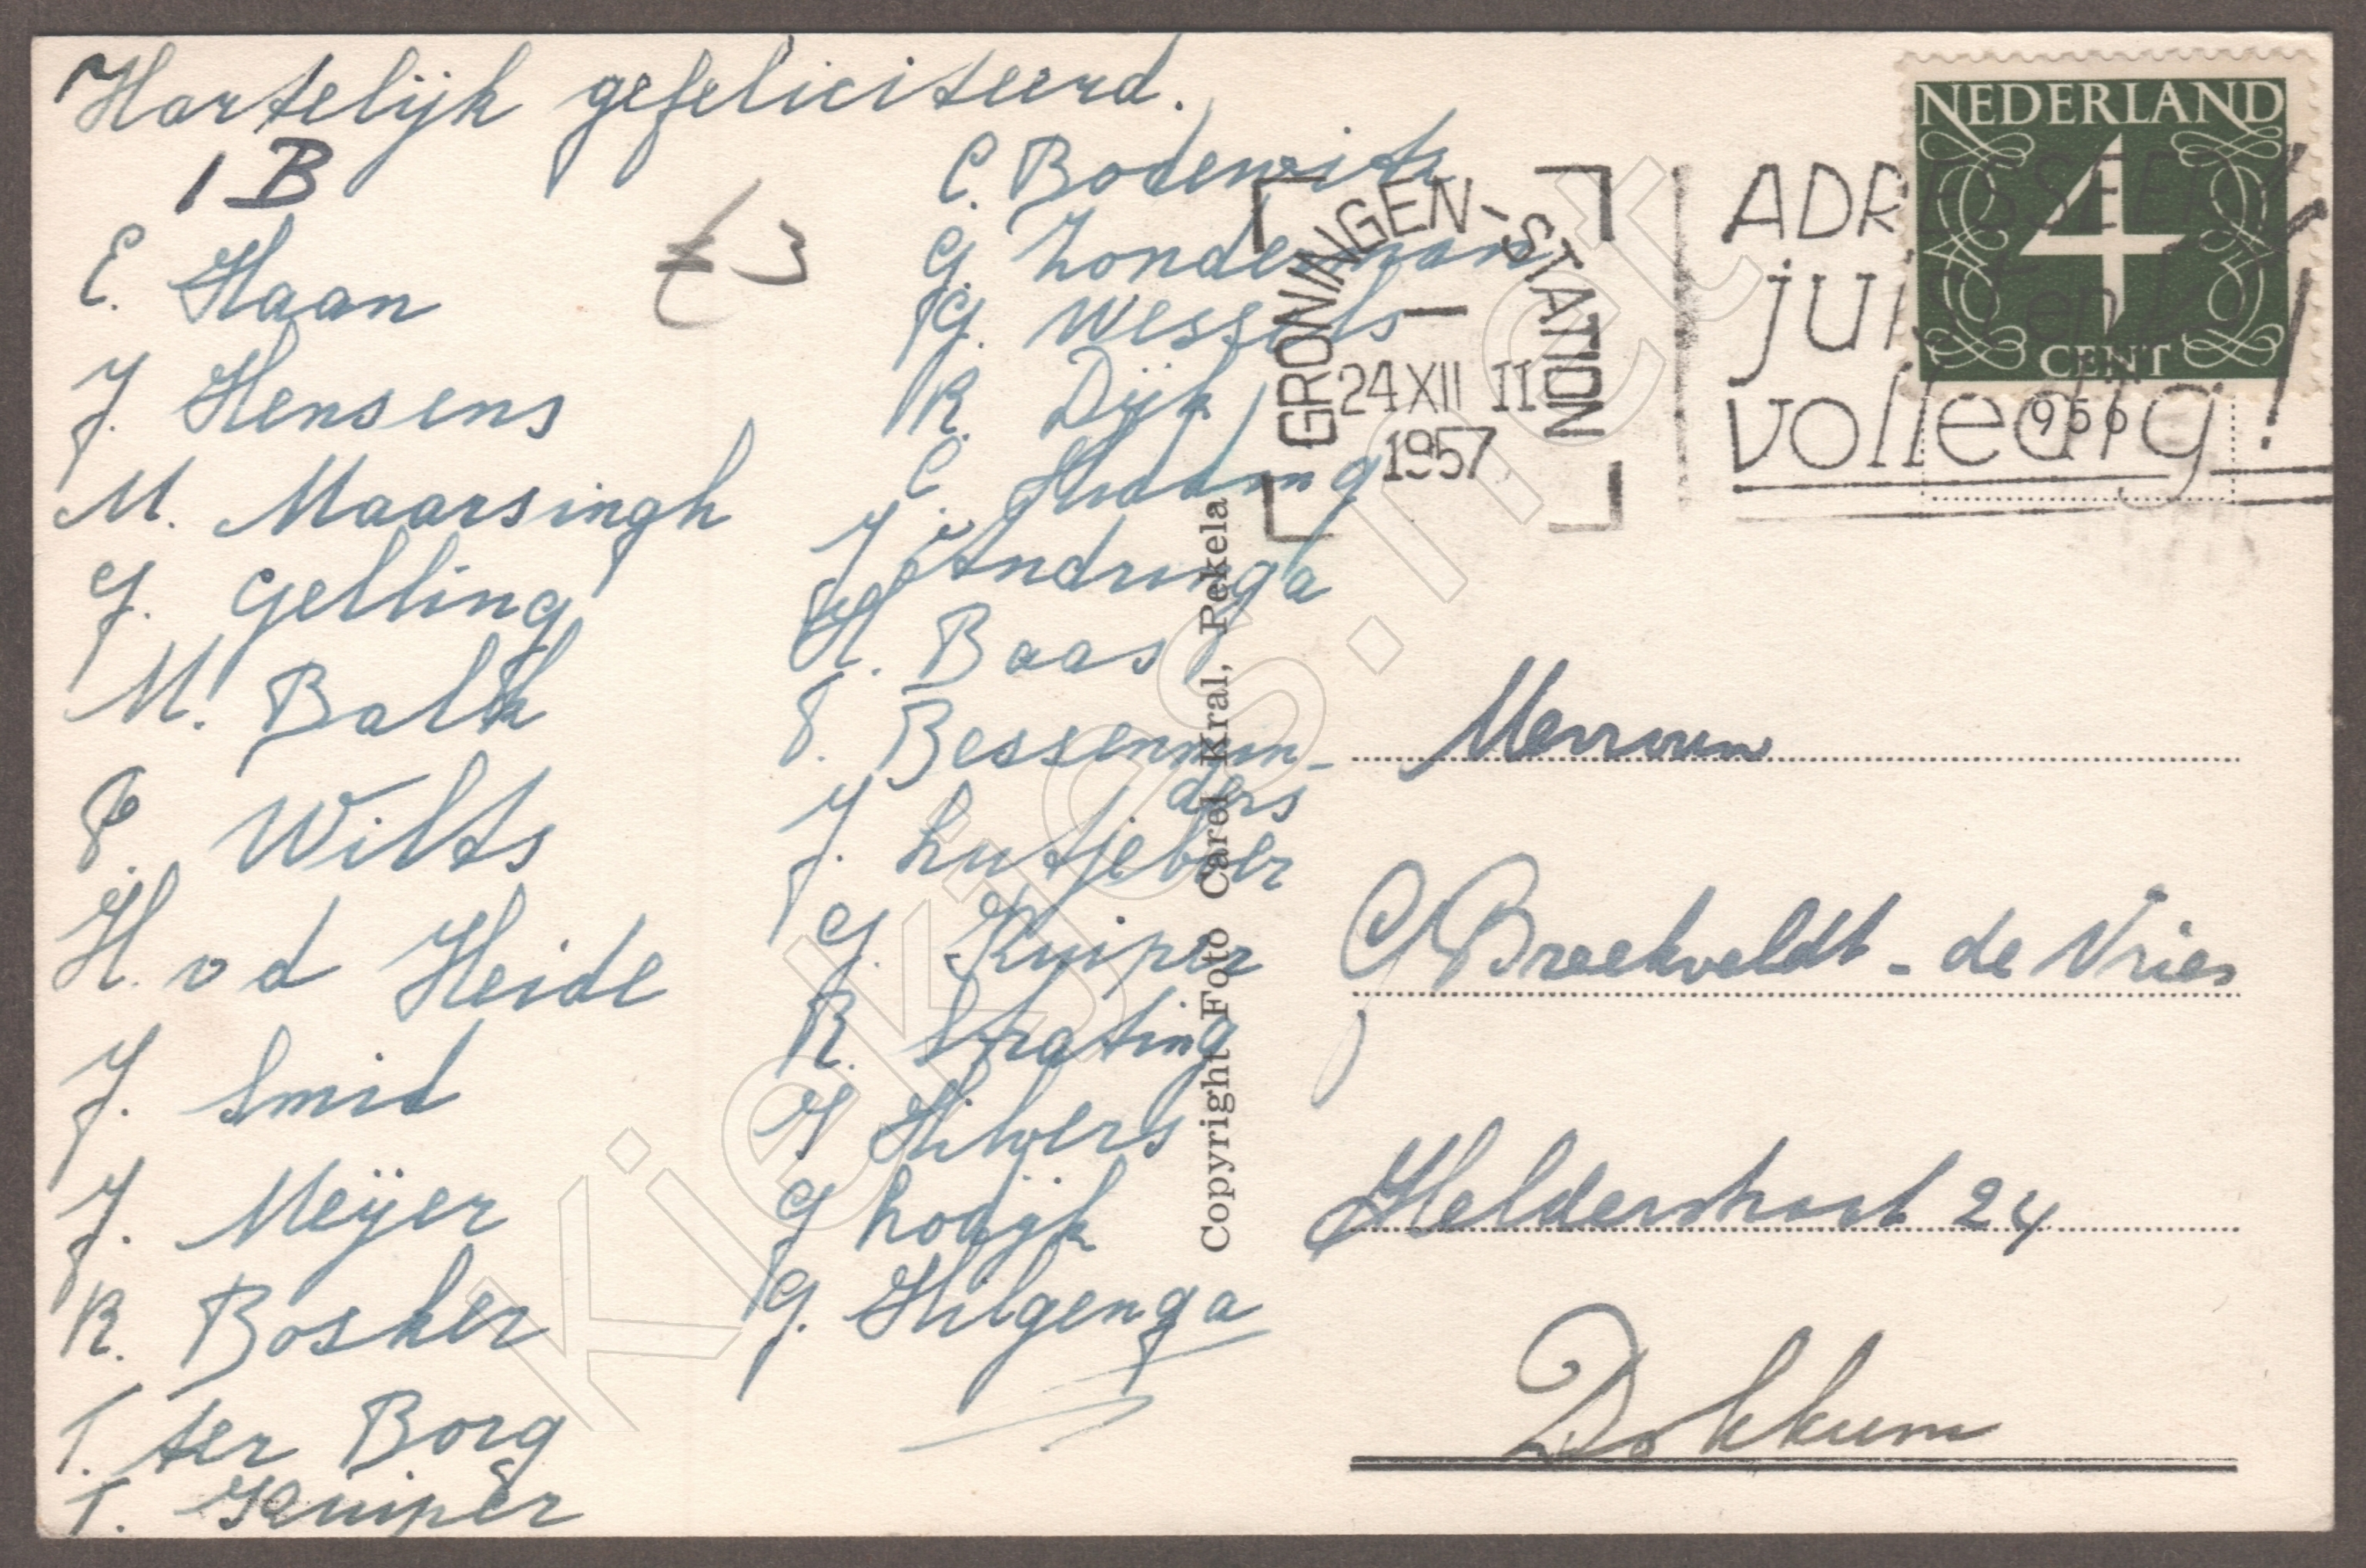 Hartelijk gefeliciteerd.
1 B
E. Haan
J. Hensens
M. Maarsingh
J. Gelling
M. Balk
P. Wilts
H. v d Heide
J. Smid
J. Meijer
R. Bosker
T. ter Borg
T. Kuiper
€ 3
C. Bodewits
G. Zonderman
G. Wessels
R. Dijk
C. Huding
J. Andringa
H. Baas
F. Bessenmin-
ders
J. Lutjeboer
G. Kuiper
R. Strating
J Hilvers
G Lodijk
G. Hilgenga
Copyright Foto Carel Kral, Pekela
GRONINGEN-STATION
24 XII II
1957
ADRESSEER
juist en
volledig!
NEDERLAND
4
CENT
956
Mevrouw
G Breekveldt - de Vries
Helderstraat 24
Dokkum
Kiekjes.net